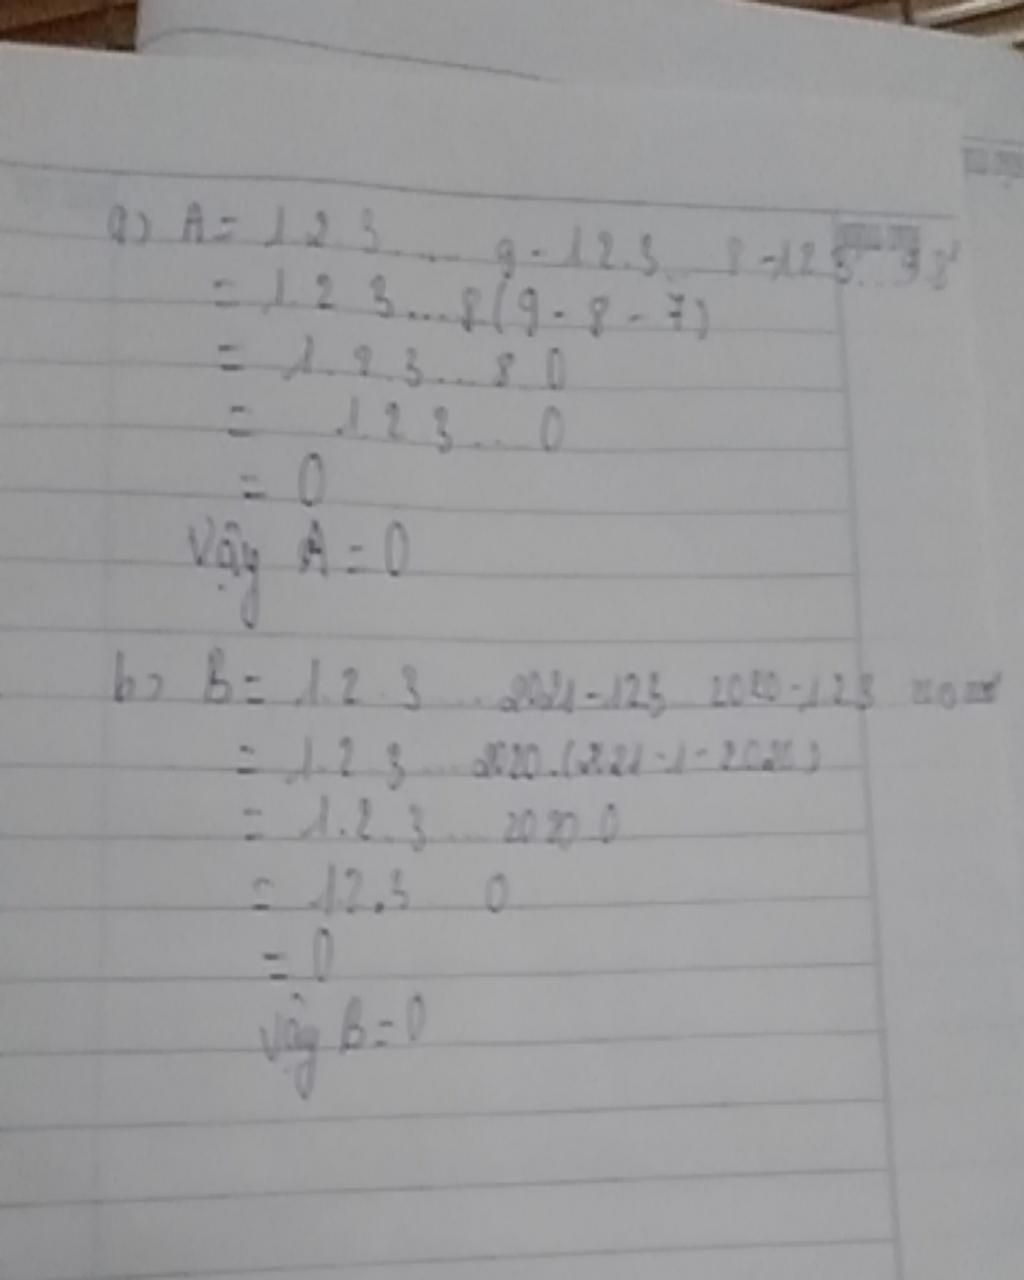 a) A = 1.2.3.... 9 - 1 2.3... 8 - 1 2 3... 8
= 1.2.3...8(9 - 8 - 7)
= 1.2.3...8.0
= 1.2.3... 0
= 0
Vậy A = 0
b) B = 1.2.3 ... 2021 - 1 2 3 2020 - 1 2 3
= 1.2.3 ... 2020.(2021 - 1 - 2020)
= 1.2.3 ... 2020 0
= 1 2.3 0
= 0
Vậy B = 0